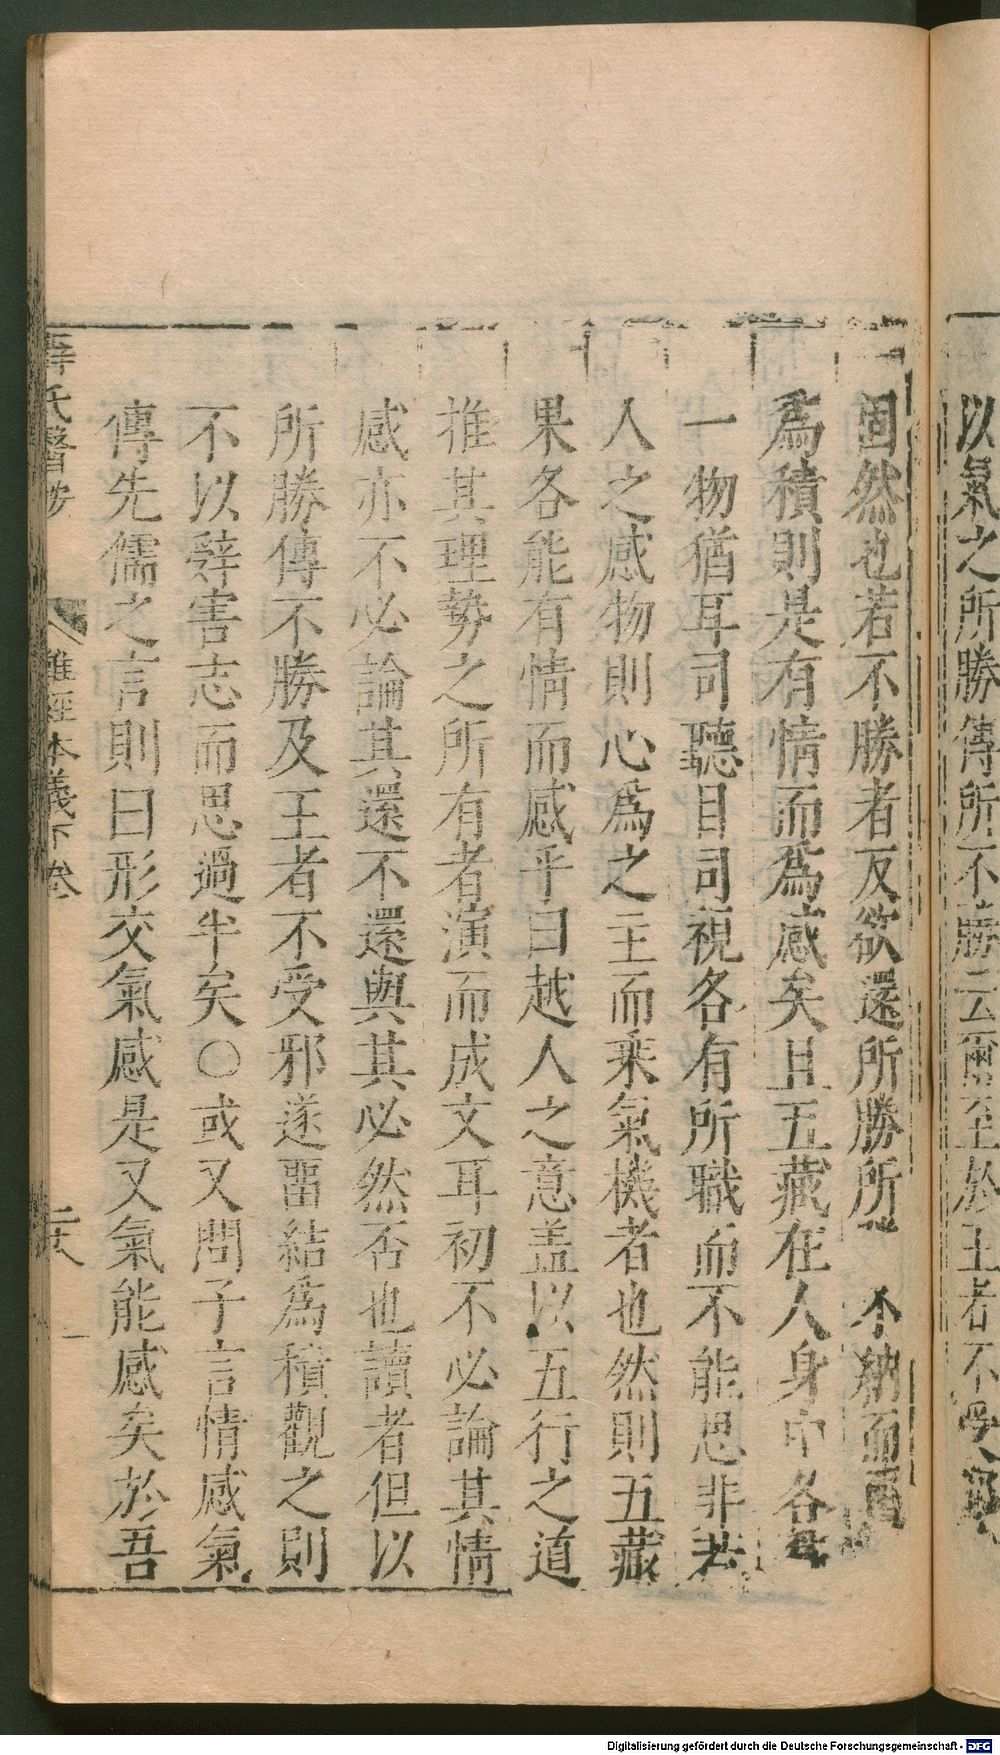 以氣之所勝傳所不勝云爾至於王者不受
固然也若不勝者反欲還所勝所不納而畱
爲積則是有情而爲感矣且五藏在人身中各
一物猶耳司聽目司視各有所職而不能思非若
人之感物則心爲之主而乘氣機者也然則五藏
果各能有情而感乎曰越人之意盖以五行之道
推其理勢之所有者演而成文耳初不必論其情
感亦不必論其還不還與其必然否也讀者但以
所勝傳不勝及王者不受邪遂畱結爲積觀之則
不以辭害志而思過半矣〇或又問子言情感氣
傳先儒之言則曰形交氣感是又氣能感矣於吾
薛氏醫按 難經本義下卷 二十八
Digitalisierung gefördert durch die Deutsche Forschungsgemeinschaft - DFG